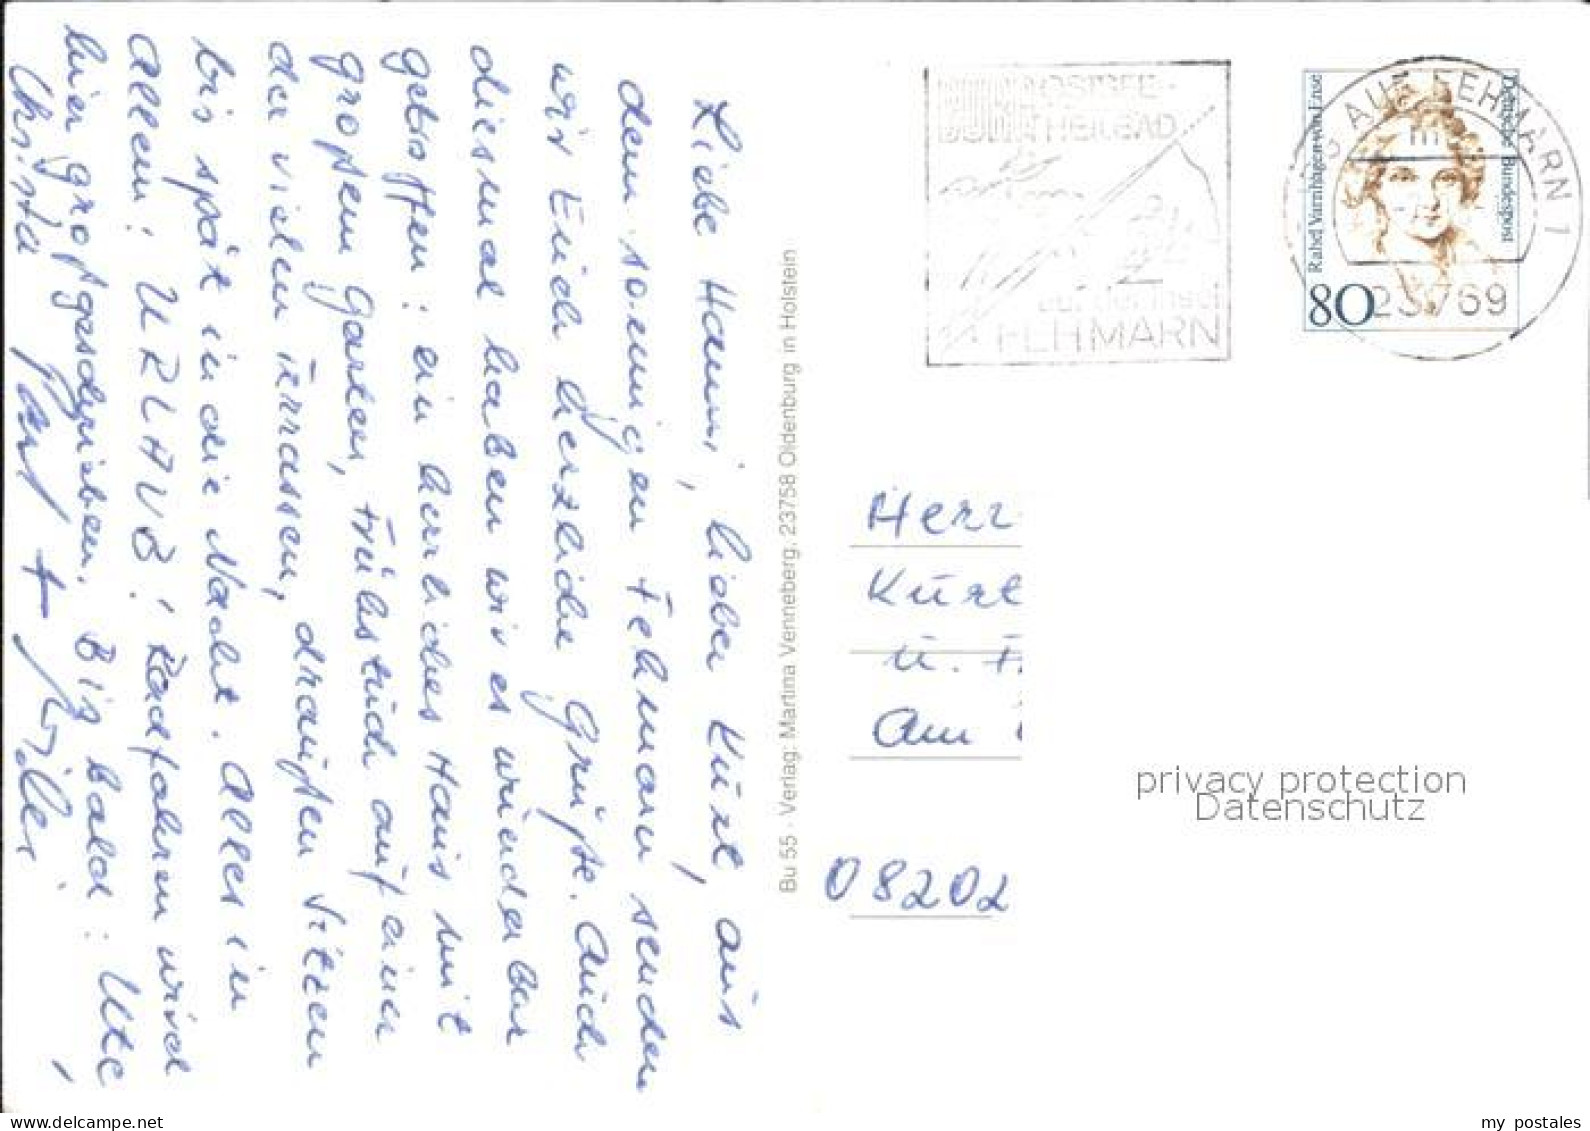 Liebe Hanni, lieber Kurt, aus
dem sonnigen Fehmarn senden
wir Euch herzliche Grüße. Auch
diesmal haben wir es wunderbar
getroffen: ein herrliches Haus mit
großem Garten, Frühstück auf einer
der vielen Terrassen, draußen sitzen
bis spät in die Nacht. Alles in
Allem: URLAUB! Radfahren wird
hier großgeschrieben. Bis bald: Ute,
Christa, +
Bu 55 · Verlag: Martina Venneberg, 23758 Oldenburg in Holstein
OSTSEE-
BURG HEILBAD
auf der Insel
FEHMARN
AUF FEHMARN 1
m
23769
Rahel Varnhagen von Ense
Deutsche Bundespost
80
Herr
Kurt
u.
Am
08202
privacy protection
Datenschutz
my postales